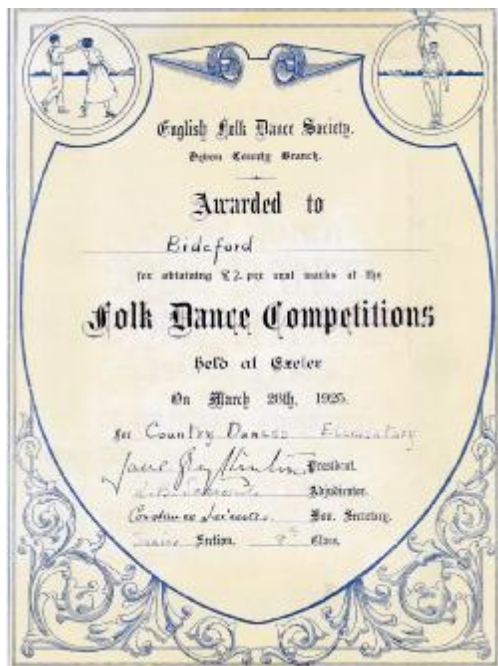 English Folk Dance Society.
Devon County Branch.
Awarded to
Bideford
for obtaining 82 per cent marks at the
Folk Dance Competitions
held at Exeter
On March 28th, 1925.
for Country Dances Elementary
President.
Adjudicator.
Constance Hon. Secretary.
Section. Class.